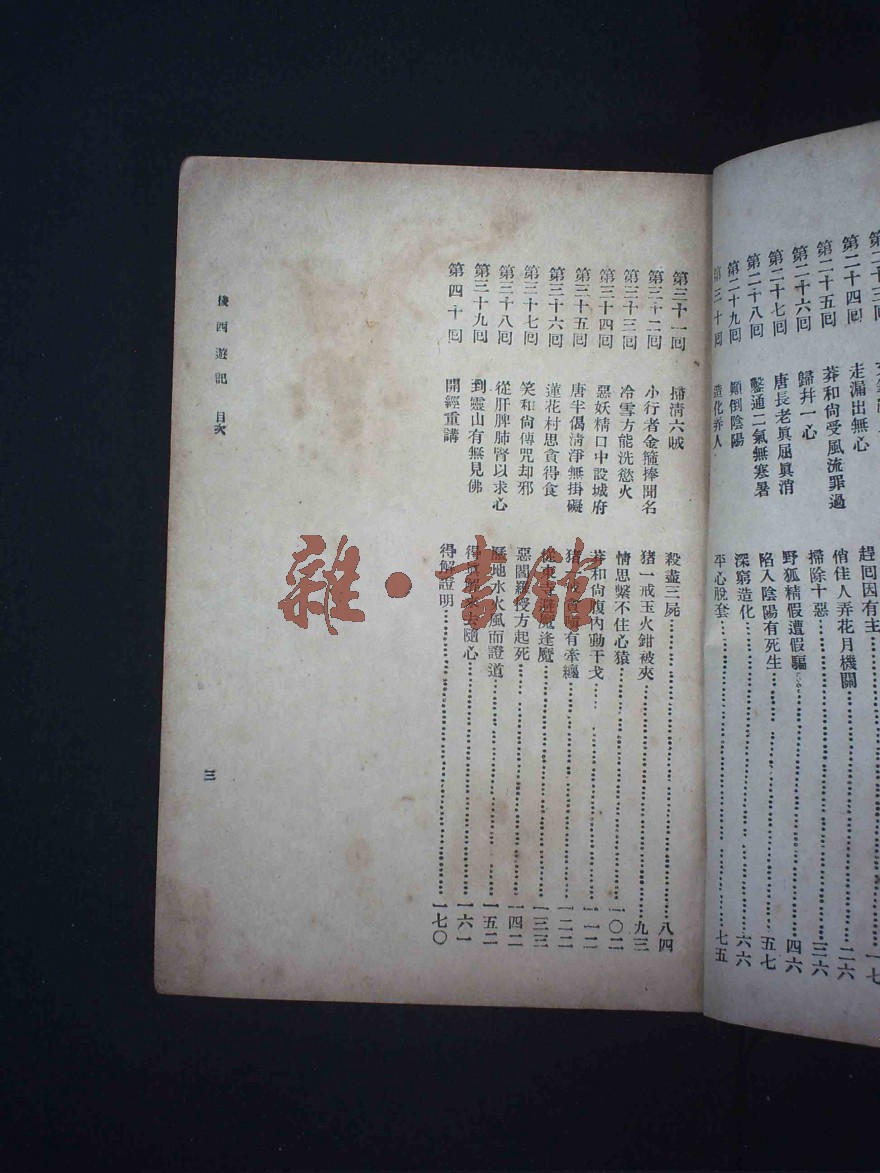 第二十四回 走漏出無心 俏佳人弄花月機關 二六
第二十五回 莽和尙受風流罪過 掃除十惡 三六
第二十六回 歸幷一心 野狐精假遭假驅 四六
第二十七回 唐長老眞屈眞消 陷入陰陽有死生 五七
第二十八回 鑿通二氣無寒暑 深窮造化 六六
第二十九回 顚倒陰陽 平心脫套 七五
第三十回 造化弄人
第三十一回 掃淸六賊 殺盡三屍 八四
第三十二回 小行者金箍捧聞名 猪一戒玉火鉗被夾 九三
第三十三回 冷雪方能洗慾火 情思繫不住心猿 一〇二
第三十四回 惡妖精口中設城府 莽和尙腹內動干戈 一一二
第三十五回 唐半偈淸淨無掛礙 猪一戒貪嗔有牽纏 一二二
第三十六回 蓮花村思貪得食 從東寺避魔逢魔 一三三
第三十七回 笑和尙傳咒却邪 惡閻羅授方起死 一四二
第三十八回 從肝脾肺腎以求心 歷地水火風而證道 一五二
第三十九回 到靈山有無見佛 得眞解來去隨心 一六一
第四十回 開經重講 得解證明 一七〇
後西遊記 目次 三
雜·書館